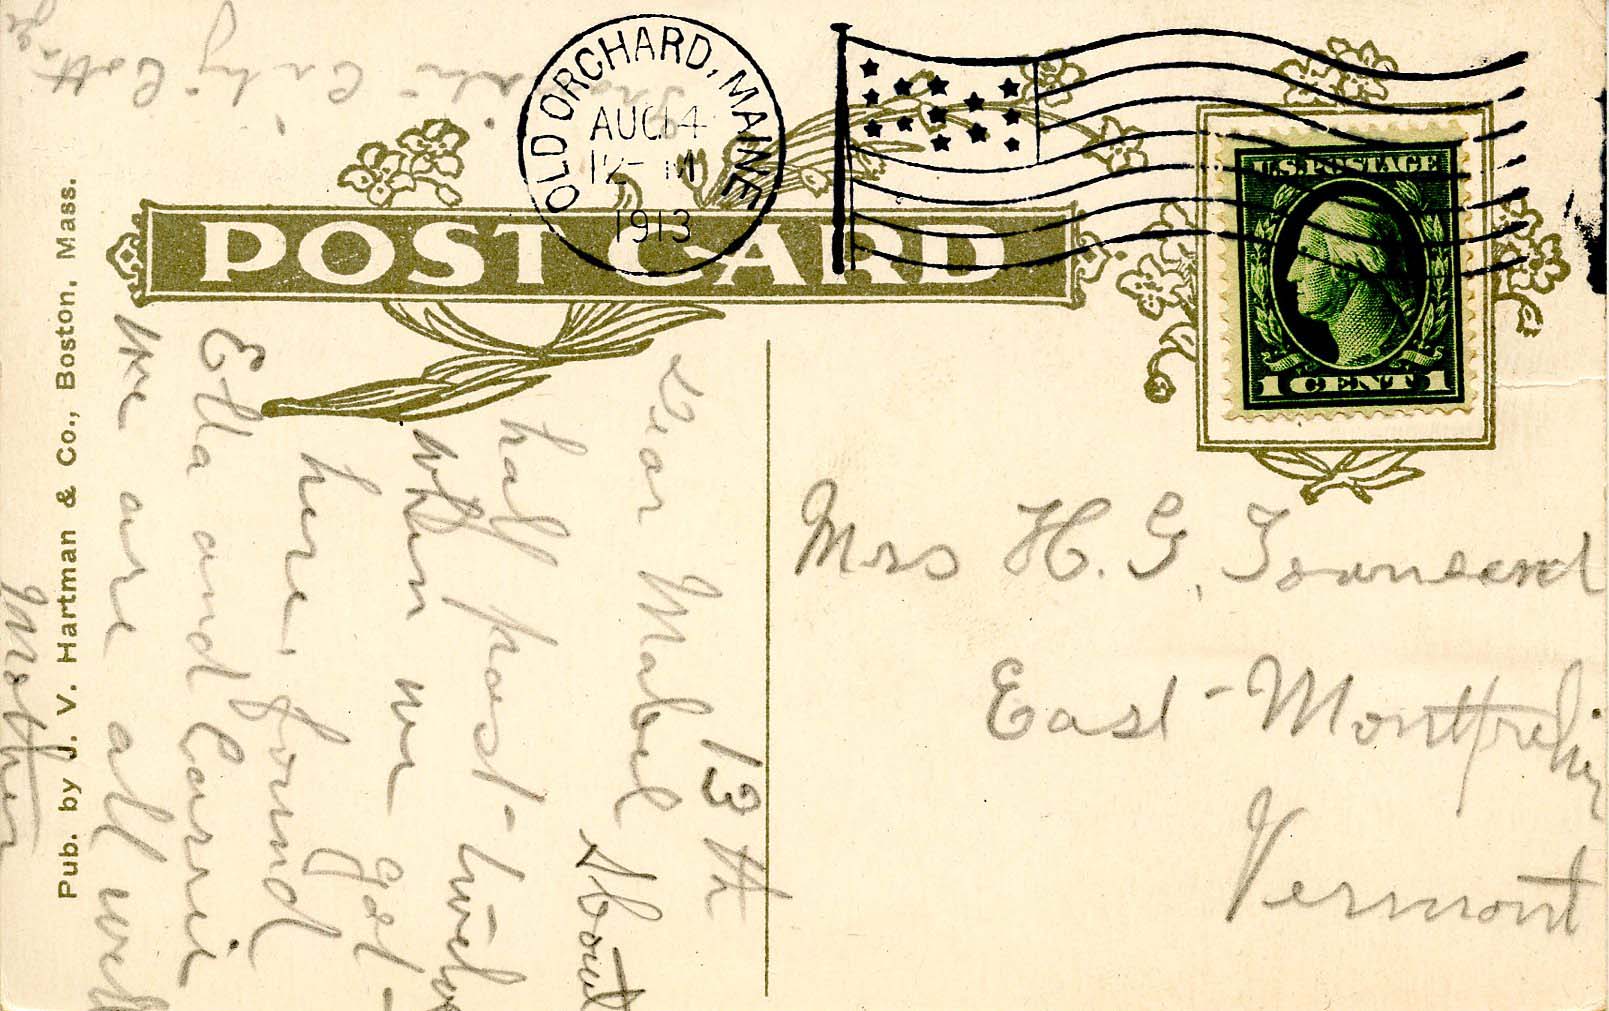 OLD ORCHARD, MAINE
AUG 14
12- M
1913
U.S. POSTAGE
1 CENT 1
POST CARD
Pub. by J. V. Hartman & Co., Boston, Mass.
13th
Dear Mabel About
half past twelve
when we got
here, found
Ella and Carrie
we are all well
Mother
Mrs H. G. Townsend
East Montpelier
Vermont